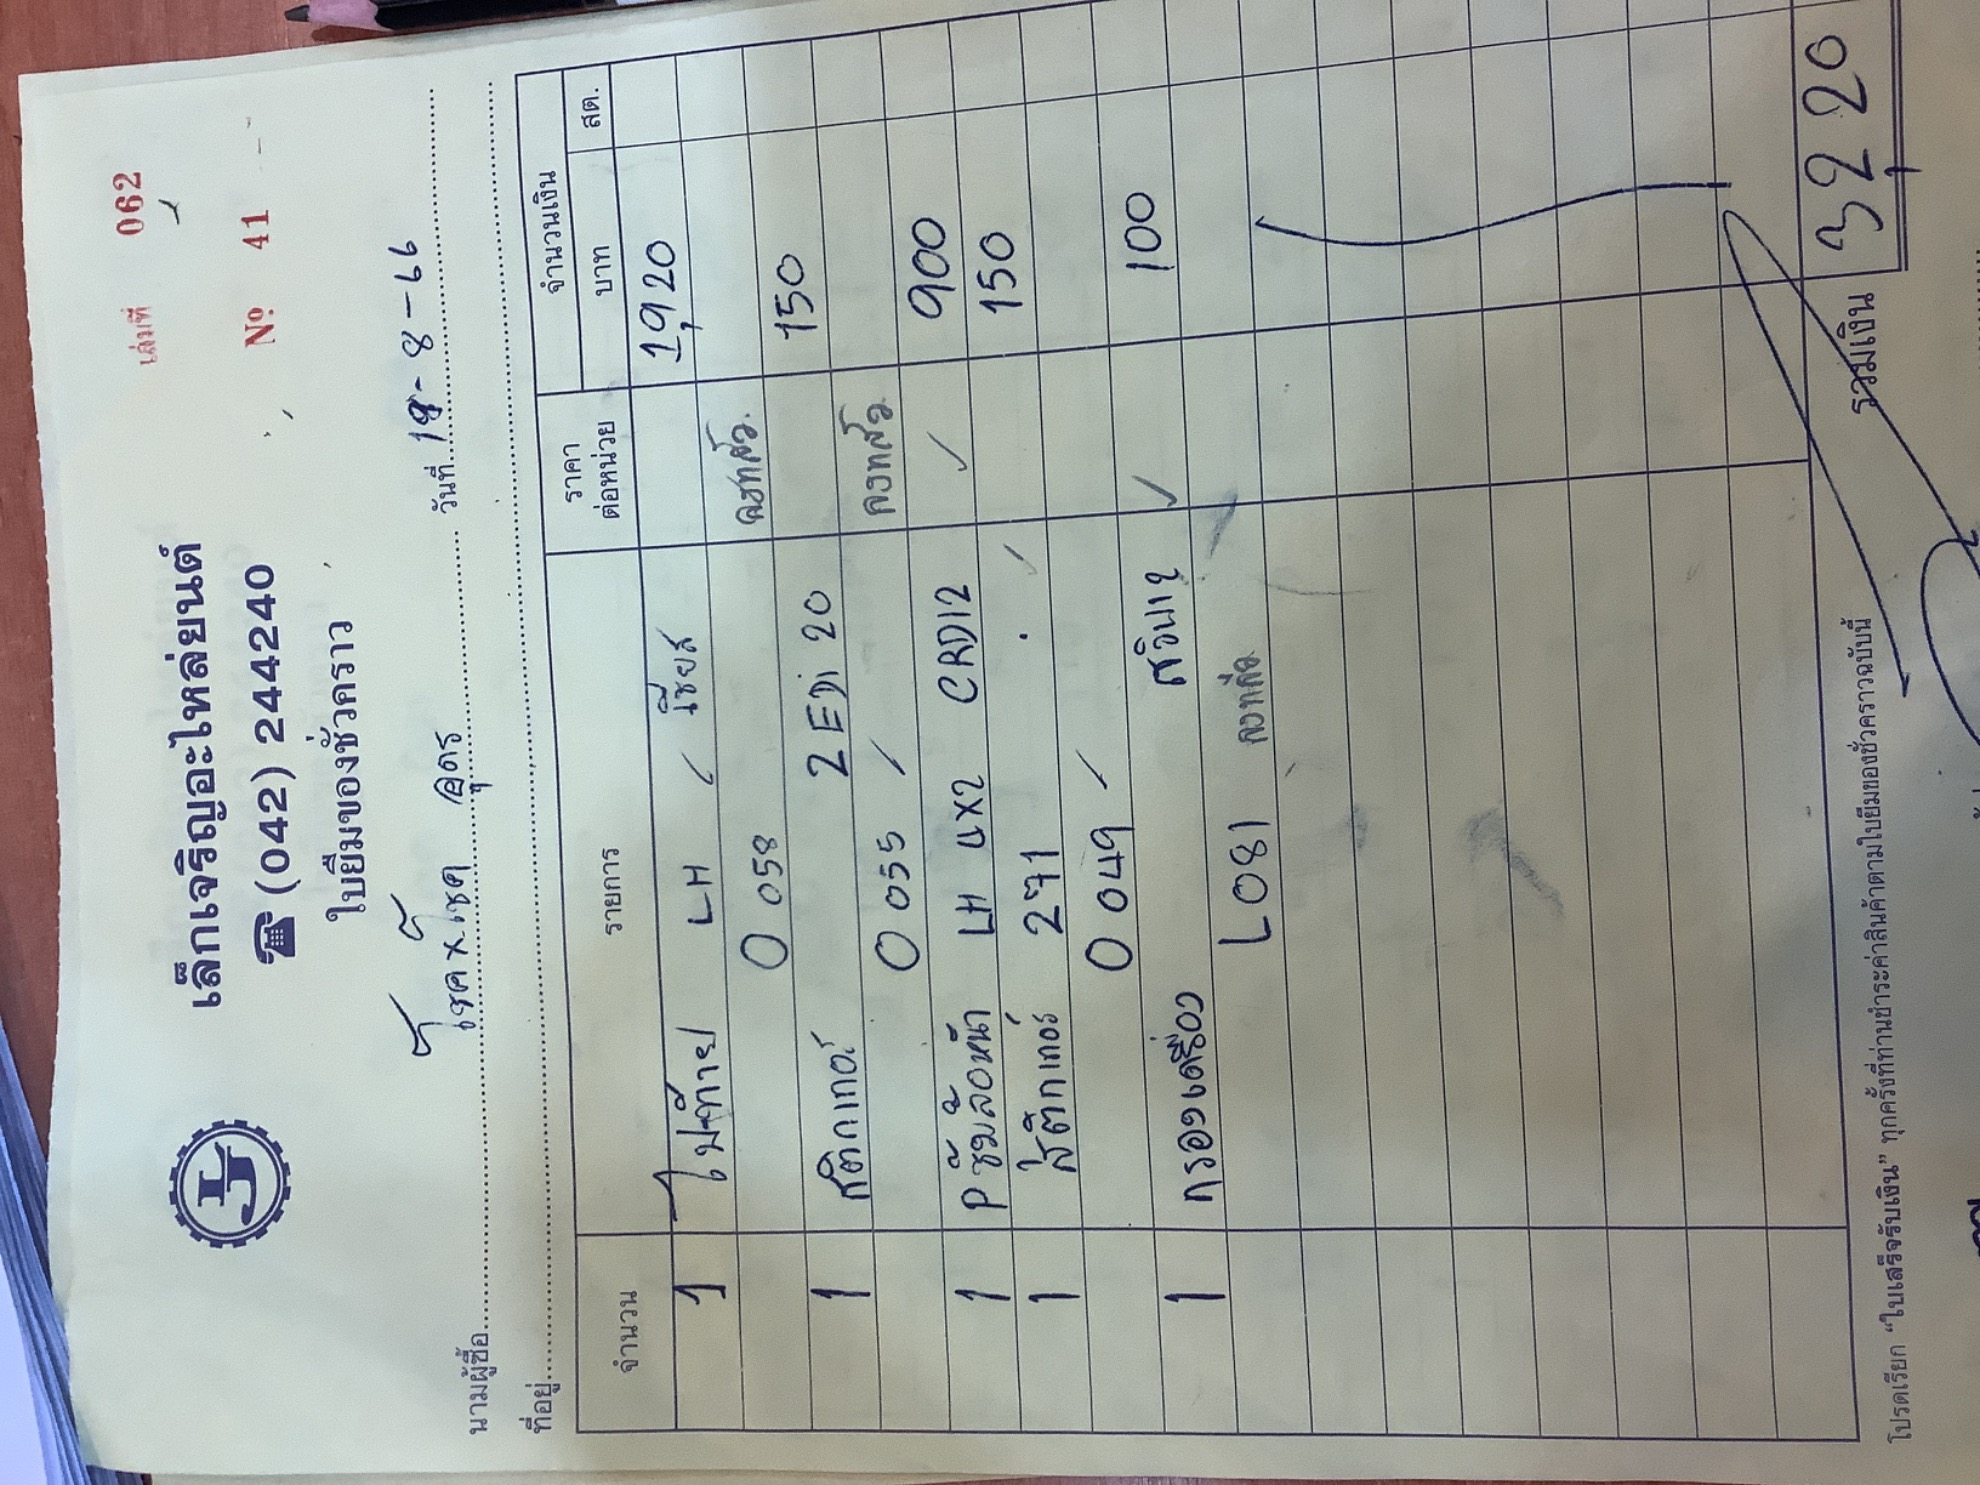 เล่มที่ 062
เล็กเจริญอะไหล่ยนต์
☎ (042) 244240
Nº 41
ใบยืมของชั่วคราว
นามผู้ซื้อ โชค x โชค อุดร วันที่ 18-8-66
ที่อยู่
จำนวน รายการ ราคาต่อหน่วย จำนวนเงิน
บาท สต.
1 ไฟท้าย LH เชียส 1,920
O 058
1 สติกเกอร์ 2 EDi 20 150
O 055
1 P ซุ้มล้อหน้า LH UX2 CRD12 900
1 สติกเกอร์ 271 150
O 049
1 กรองเครื่อง 100
L081
รวมเงิน 3220
โปรดเรียก "ใบเสร็จรับเงิน" ทุกครั้งที่ท่านชำระค่าสินค้าตามใบยืมของชั่วคราวฉบับนี้